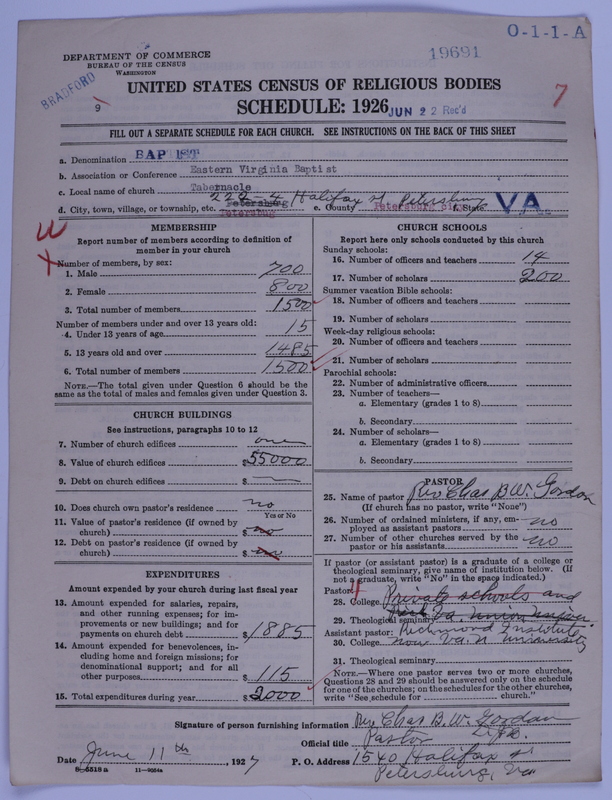 O-1-1-A
19691
DEPARTMENT OF COMMERCE
BUREAU OF THE CENSUS
WASHINGTON
BRADFORD
9
UNITED STATES CENSUS OF RELIGIOUS BODIES
SCHEDULE: 1926
JUN 22 Rec'd
7
FILL OUT A SEPARATE SCHEDULE FOR EACH CHURCH. SEE INSTRUCTIONS ON THE BACK OF THIS SHEET
a. Denomination BAPTIST
b. Association or Conference Eastern Virginia Baptist
c. Local name of church Tabernacle
d. City, town, village, or township, etc. Petersburg Halifax st Petersburg e. County f. State VA
Petersburg
MEMBERSHIP
Report number of members according to definition of
member in your church
Number of members, by sex:
1. Male 700
2. Female 800
3. Total number of members 1500
Number of members under and over 13 years old:
4. Under 13 years of age 15
5. 13 years old and over 1485
6. Total number of members 1500
NOTE.—The total given under Question 6 should be
the same as the total of males and females given under Question 3.
CHURCH BUILDINGS
See instructions, paragraphs 10 to 12
7. Number of church edifices one
8. Value of church edifices $55000
9. Debt on church edifices $
10. Does church own pastor's residence no
Yes or No
11. Value of pastor's residence (if owned by
church) $ no
12. Debt on pastor's residence (if owned by
church) $ no
EXPENDITURES
Amount expended by your church during last fiscal year
13. Amount expended for salaries, repairs,
and other running expenses; for im-
provements or new buildings; and for
payments on church debt $1885
14. Amount expended for benevolences, in-
cluding home and foreign missions; for
denominational support; and for all
other purposes $115
15. Total expenditures during year $2000
CHURCH SCHOOLS
Report here only schools conducted by this church
Sunday schools:
16. Number of officers and teachers 14
17. Number of scholars 200
Summer vacation Bible schools:
18. Number of officers and teachers
19. Number of scholars
Week-day religious schools:
20. Number of officers and teachers
21. Number of scholars
Parochial schools:
22. Number of administrative officers
23. Number of teachers—
a. Elementary (grades 1 to 8)
b. Secondary
24. Number of scholars—
a. Elementary (grades 1 to 8)
b. Secondary
PASTOR
25. Name of pastor Rev Chas B.W. Gordon
(If church has no pastor, write "None")
26. Number of ordained ministers, if any, em-
ployed as assistant pastors no
27. Number of other churches served by the
pastor or his assistants no
If pastor (or assistant pastor) is a graduate of a college or
theological seminary, give name of institution below. (If
not a graduate, write "No" in the space indicated.)
Pastor:
28. College Private schools and
29. Theological seminary Va. Union Univer.
Assistant pastor: Richmond Institute
30. College now Va. U University
31. Theological seminary
NOTE.—Where one pastor serves two or more churches,
Questions 28 and 29 should be answered only on the schedule
for one of the churches; on the schedules for the other churches,
write "See schedule for church."
Signature of person furnishing information Rev Chas B.W. Gordon
Official title Pastor
Date June 11th, 1927 P. O. Address 1540 Halifax st
Petersburg, Va
8-5518a 11-9054a